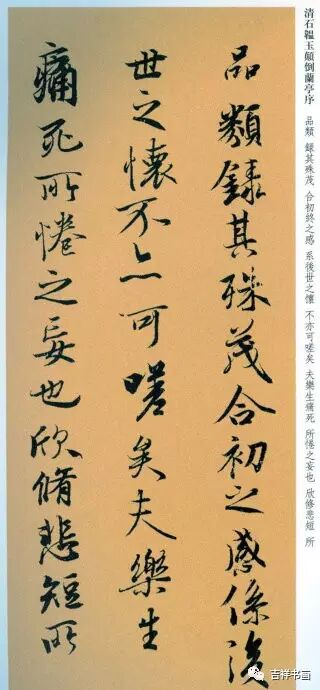 清石韞玉顛倒蘭亭序　品類　録其殊茂　合初終之感　系後世之懷　不亦可嗟矣　夫樂生痛死　所惓之妄也　欣修悲短　所
品類録其殊茂合初之感係後
世之懷不亦可嗟矣夫樂生
痛死所惓之妄也欣脩悲短所
吉祥书画